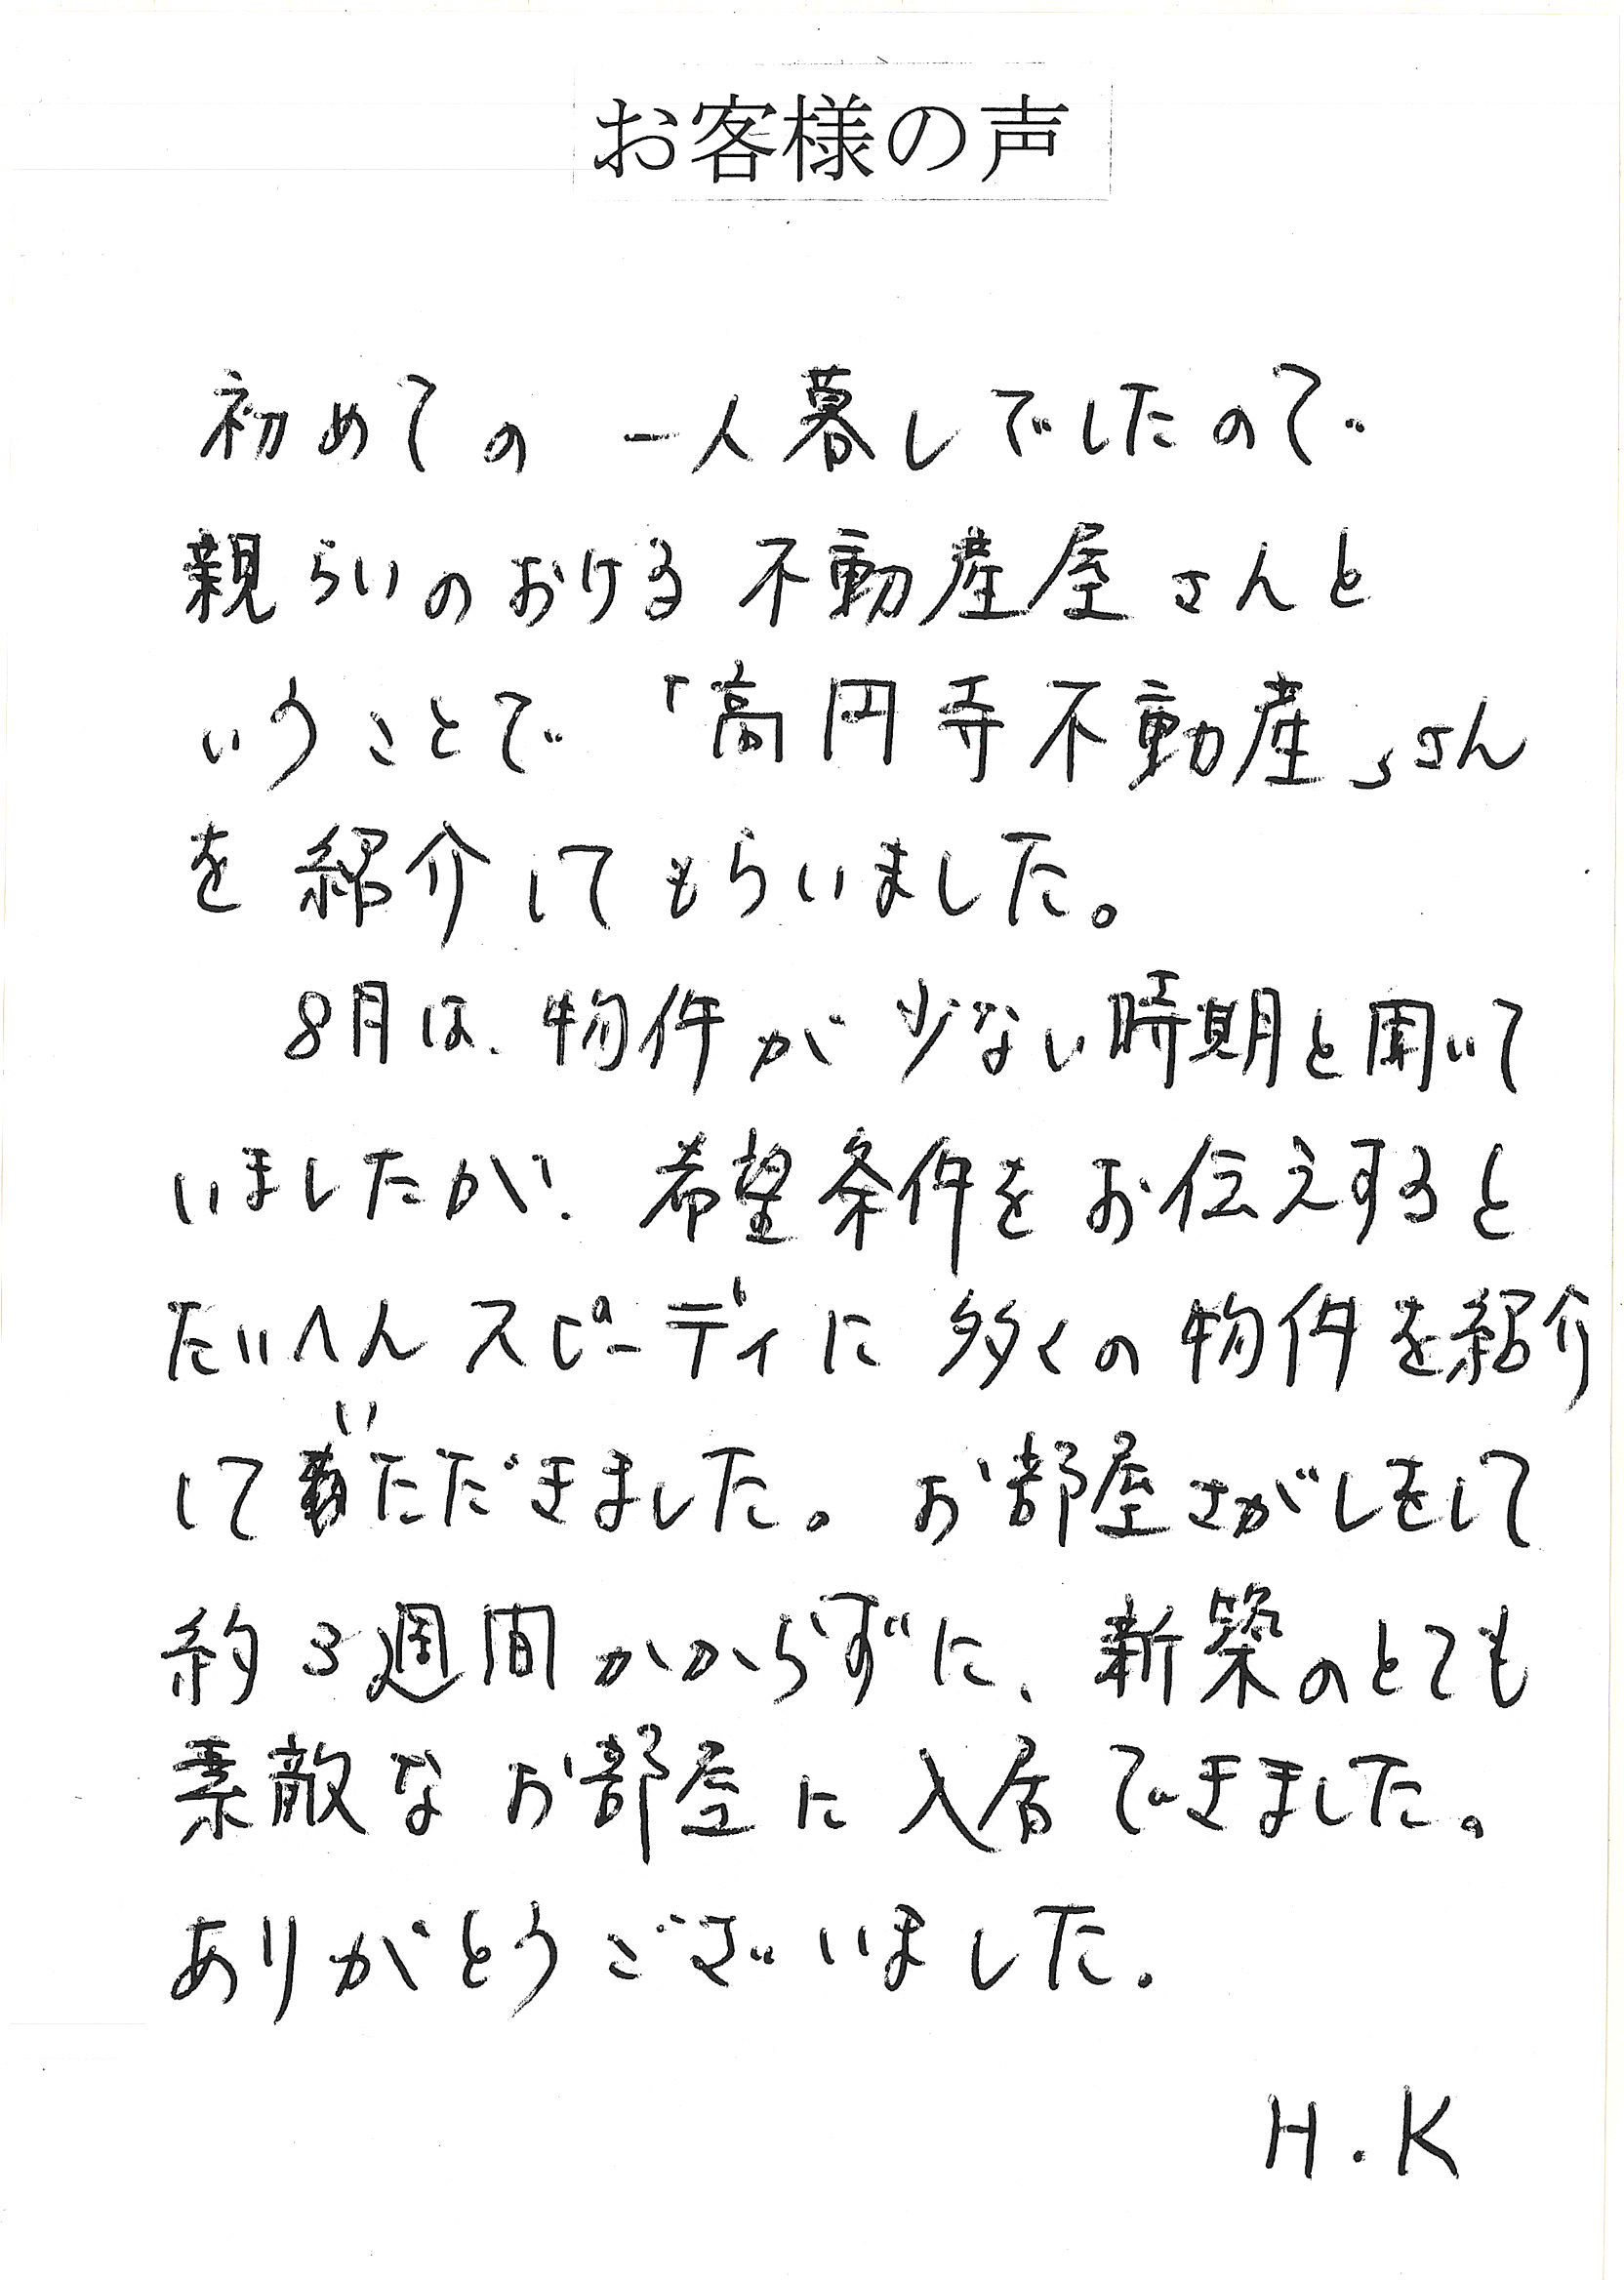 お客様の声
初めての 一人暮しでしたので
親らいのおける 不動産屋さんと
いうことで 「高円寺不動産」さん
を 紹介してもらいました。
8月は、物件が 少ない時期と聞いて
いましたが、希望条件をお伝えすると
たいへん スピーディに 多くの 物件を紹介
していただきました。お部屋さがしをして
約3週間かからずに、新築のとても
素敵なお部屋に入居できました。
ありがとうございました。
H.K